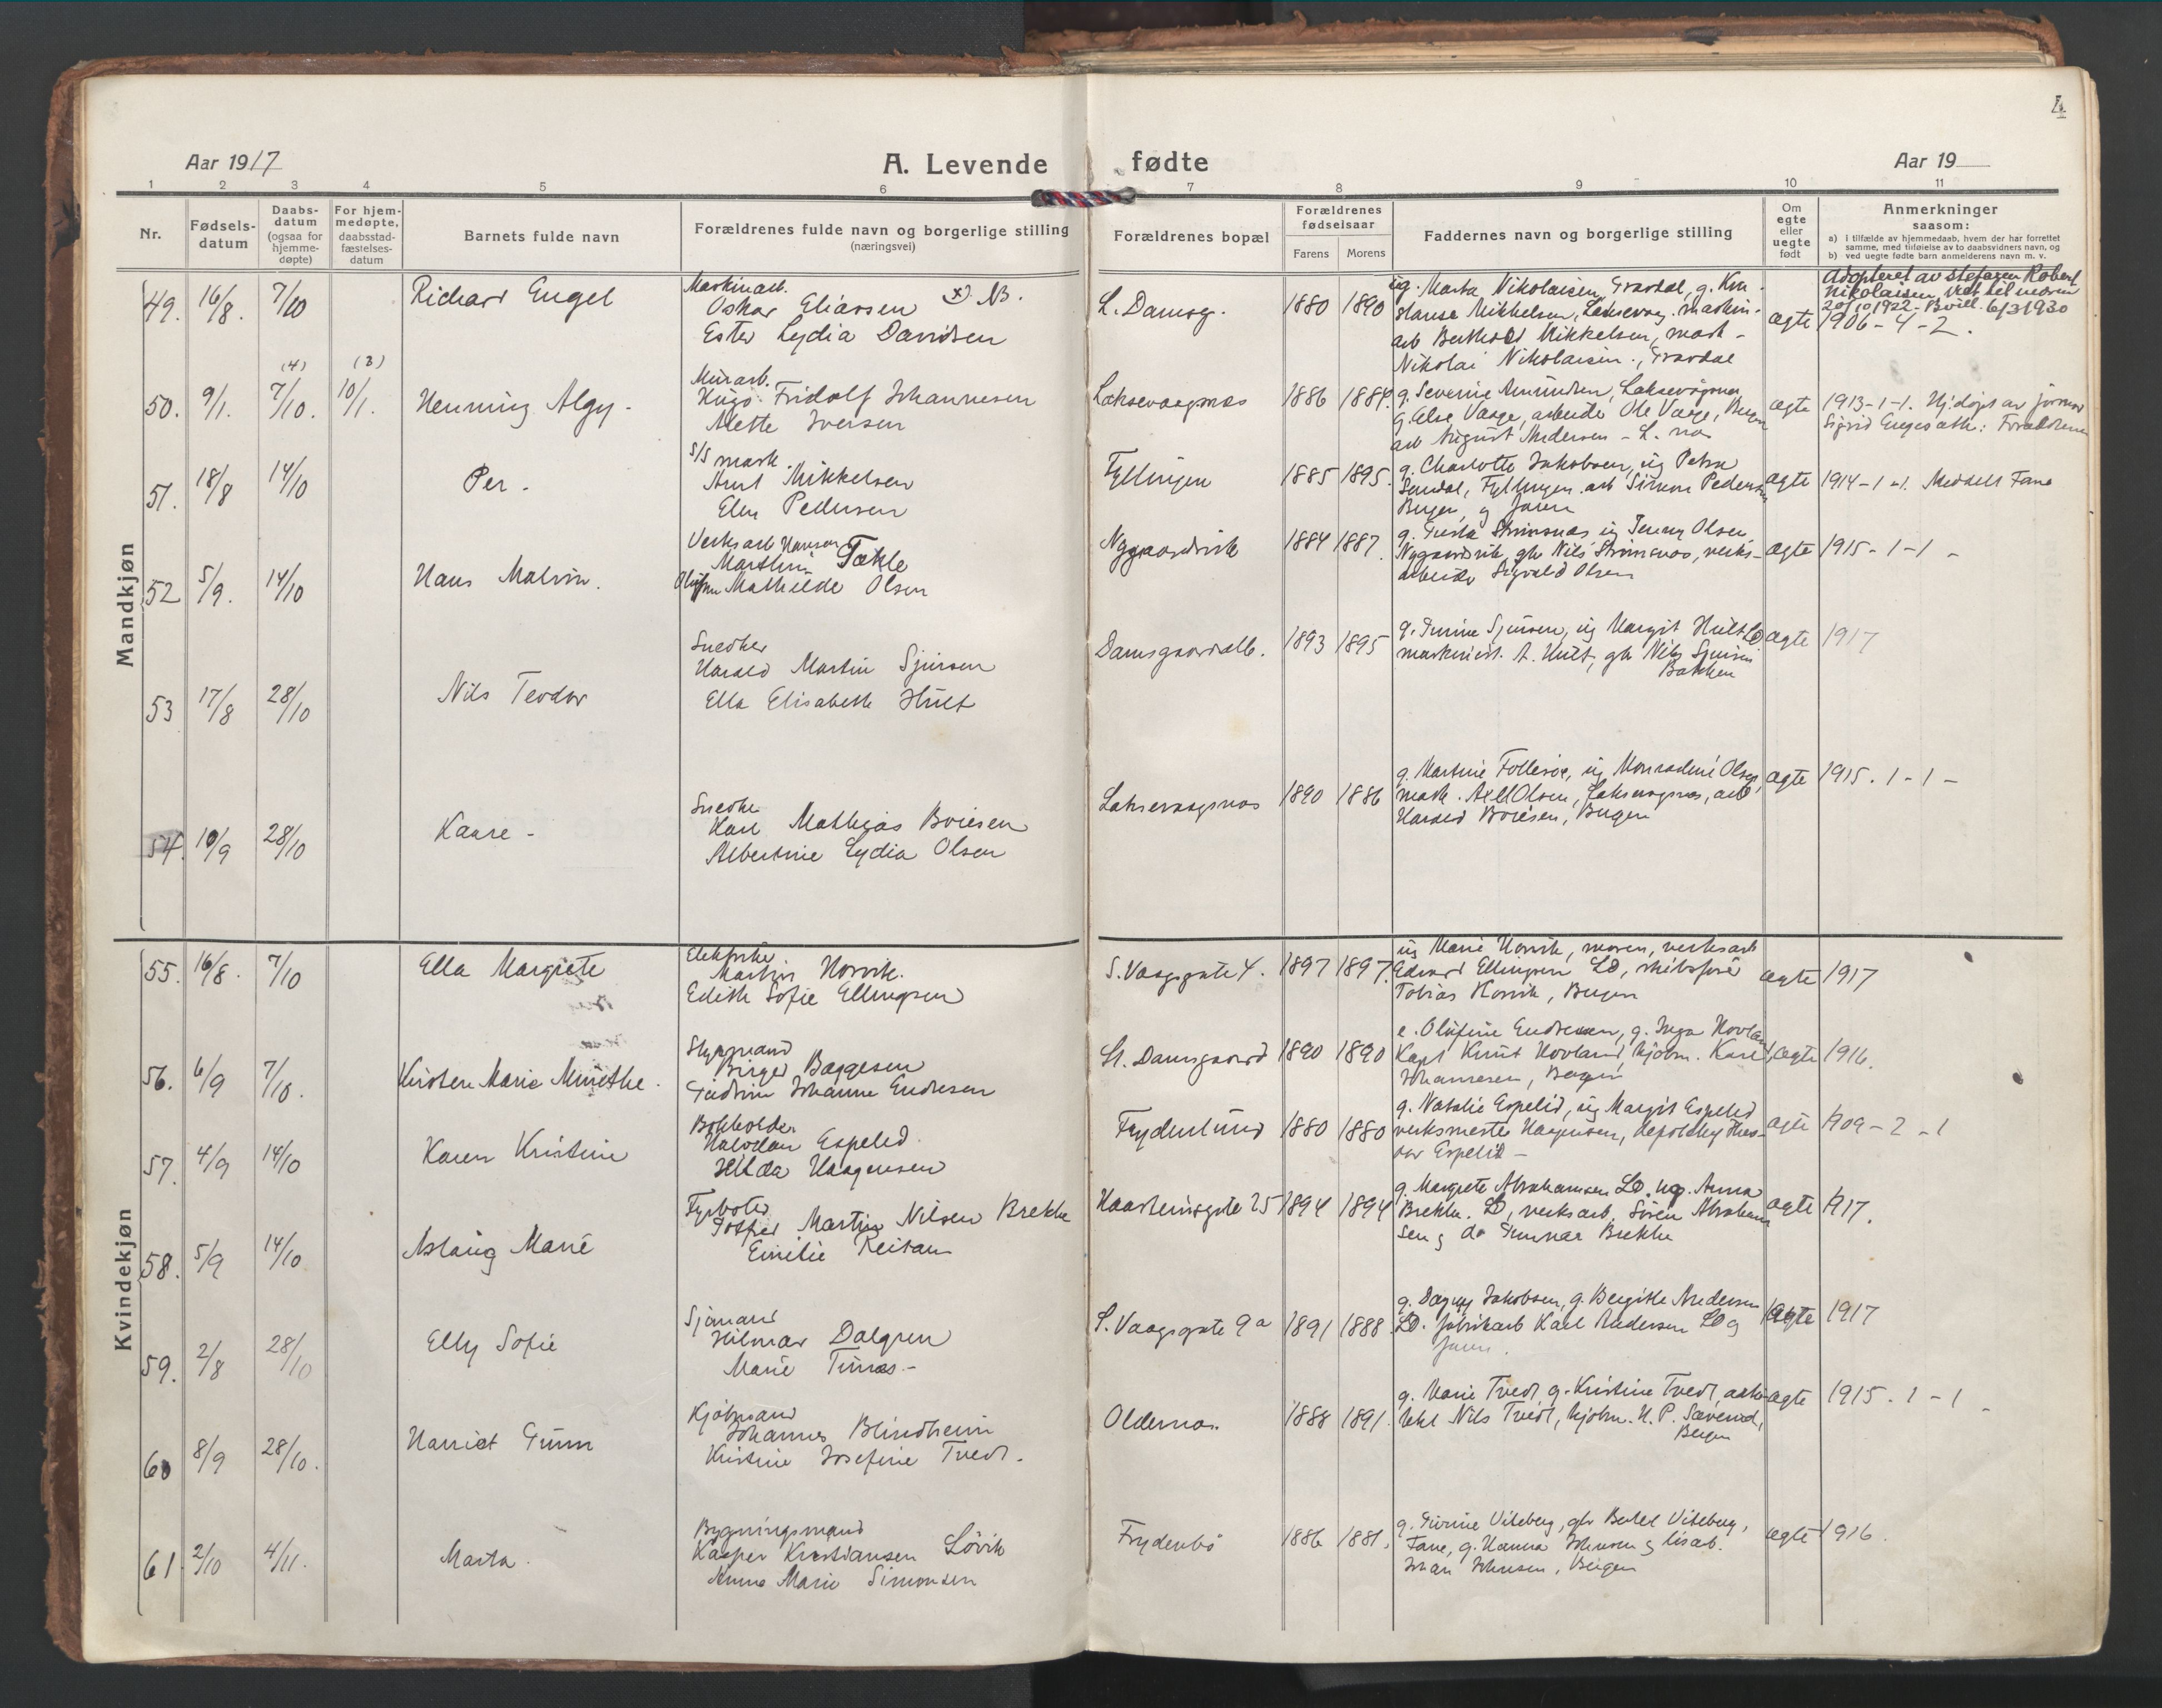 4
Aar 1917
A. Levende fødte
Aar 19
1 2 3 4 5 6 7 8 9 10 11
Nr.
Fødsels-
datum
Daabs-
datum
(ogsaa for
hjemme-
døpte)
For hjem-
medøpte,
daabsstad-
fæstelses-
datum
Barnets fulde navn
Forældrenes fulde navn og borgerlige stilling
(næringsvei)
Forældrenes bopæl
Forældrenes
fødselsaar
Farens Morens
Faddernes navn og borgerlige stilling
Om
egte
eller
uegte
født
Anmerkninger
saasom:
a) i tilfælde av hjemmedaab, hvem der har forrettet
samme, med tilføielse av to daabsvidners navn, og
b) ved uegte fødte barn anmelderens navn m. v.
Mandkjøn
49. 16/8. 7/10
Richard Engel
Maskinarb.
Oskar Eliassen x) NB.
Ester Lydia Davidsen
L. Damsg. 1880 1890
ug. Marta Nikolaisen, Gravdal, g. Kon
stanse Mikkelsen, Laksevaag. maskin-
arb Berthold Mikkelsen, mask-
Nikolai Nikolaisen, Gravdal
ægte
Adopteret av stefaren Robert
Nikolaisen, viet til moren
20/10 1922 - Bevill. 6/3 1930
1906-4-2.
50. 9/1. (4) 7/10. (3) 10/1.
Henning Algy-
Murarb.
Hugo Fridolf Johannesen
Alette Iversen
Laksevaagnæs 1886 1884.
g. Severine Amundsen, Laksevågnæs
g. Else Vaage, arbeider Ole Vaage, Bergen
arb August Andersen - L. næs
ægte
1913-1-1. Hj.døpt av jormor
51. 18/8 14/10
Per-
S/S mask.
Arnt Mikkelsen
Elen Pedersen
Fyllingen 1885 1895.
g. Charlotte Jakobsen, ug Petra
Sendal, Fyllingen. arb Simon Pedersen
Bergen og faren
ægte
1914-1-1. Meddelt Fane
52 5/9. 14/10
Hans Malvin.
Verksarb Hansen
Marthin Takle
Mathilde Olsen
Nygaardsvik 1884 1887.
Nygaardsvik, gbr Nils Strimsnæs, verks-
arbeider Sigvald Olsen
ægte
1915-1-1-
53 17/8 28/10
Nils Teodor
Snedker
Harald Martin Sjursen
Ella Elisabeth Hult
Damsgaardalle. 1893 1895
g. Gurine Sjursen, ug Margit Hult LD
maskinist. A. Hult, gbr Nils Sjursen
Bakken
ægte
1917
54. 10/9 28/10
Kaare-
Snedker
Karl Mathias Boiesen
Albertine Lydia Olsen
Laksevaagnæs 1890 1886
g. Martine Follesøe, ug Monradine Olsen,
mask. Axel Olsen, Laksevagnæs, arb
Harald Boiesen, Bergen
ægte
1915.1-1-
Kvindekjøn
55. 16/8. 7/10
Ella Margrete
Elektriker
Martin Horvik.
Edith Sofie Ellingsen
S. Vaagsgate 4. 1897 1897.
ug Marie Horvik, moren, verksarb
Edvard Ellingsen LD, skibsfører
Tobias Horvik, Bergen
ægte
1917
56. 6/9 7/10.
Kirsten Marie Minethe.
Styrmand
Birger Baggesen
Gudrun Johanne Endresen
St. Damsgaard 1890 1890
e. Olufine Endresen, g. Inga Hovland
Kapt Knut Hovland, kjøbm. Karl
Johannesen, Bergen
ægte
1916.
57. 4/9 14/10
Karen Kristine
Bokholder
Halvdan Espelid.
Hilda Haagensen
Frydenlund 1880 1880
g. Natalie Espelid, ug Margit Espelid
verksmester Haagensen,
Espelid-
ægte
1909-2-1
58. 5/9 14/10
Aslaug Marie
Fyrbøter
Gotfred Martin Nilsen Brekke
Emilie Reitan
Haasteinsgate 25 1894 1894
g. Margrete Abrahamsen LD. ug. Anna
Brekke. LD, verksarb. Søren Abraham
sen og do Gunnar Brekke
ægte
1917.
59. 2/8 28/10
Elly Sofie
Sjømand
Hilmar Dalgren
Marie Timas-
S. Vaagsgate 9a 1891 1888.
g. Dagny Jakobsen, g. Bergitte Andersen
LD. fabrikarb Karl Andersen LD og
faren.
ægte
1917
60 8/9 28/10.
Harriet Gunn
Kjøbmand
Johannes Blindheim
Kristine Josefine Tvedt.
Oldernæs. 1888 1891.
g. Marie Tvedt, g. Kristine Tvedt,
Nils Tvedt, kjøbm. H. P. Sævervd,
Bergen
ægte
1915.1-1-
61. 2/10 4/11.
Marta.
Bygningsmand
Kasper Kristiansen Løvik
Anna Marie Simonsen
Frydenbø 1886 1881.
g. Gurine Vileberg, gbr Bertel Vileberg,
Fane, g. Hanna Johnsen og lisarb.
Johan Johnsen, Bergen
ægte
1916.